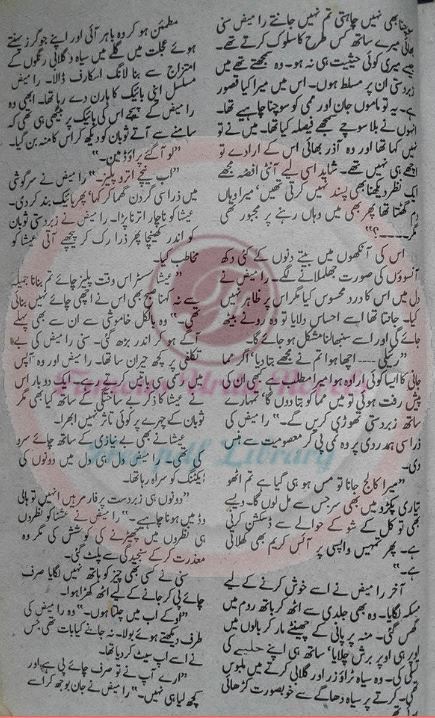 بھی نہیں چاہتی تم نہیں جانتے رامیض سنی
بھائی میرے ساتھ کس طرح کا سلوک کرتے تھے۔
جیسے میری کوئی حیثیت ہی نہ ہو۔ وہ سمجھتے تھے میں
زبردستی ان پر مسلط ہوں۔ اس میں میرا کیا قصور
ہے۔ یہ تو ماموں جان اور ممی کو سوچنا چاہیے تھا۔
انہوں نے بلا سوچے سمجھے فیصلہ کیا تھا۔ میں نے تو
نہیں کہا تھا اور وہ آذر بھائی اس کے ارادے تو
اچھے ہی نہیں تھے۔ شاید اسی لیے آنٹی افضہ مجھے
ایک نظر دیکھنا بھی پسند نہیں کرتی تھیں، میرا وہاں
دم گھٹتا تھا پھر بھی میں وہاں رہنے پر مجبور تھی
مگر۔۔۔۔؟"
اس کی آنکھوں میں بیتے دنوں کے کئی دکھ
آنسوؤں کی صورت جھلملانے لگے۔ رامیض نے
دل میں اس کا درد محسوس کیا مگر اس پر ظاہر نہیں
کیا۔ جانتا تھا اسے احساس دلایا تو وہ رونے بیٹھ
جائے گی اور اسے سنبھالنا مشکل ہو جائے گا۔
"رئیلی۔۔۔۔ اچھا ہوا تم نے مجھے بتا دیا' اگر مما
جانی کا ایسا کوئی ارادہ ہوا میرا مطلب ہے کبھی ان کی
پیش رفت ہوئی تو میں مما کو بتا دوں گا' تمہارے
ساتھ زبردستی تھوڑی کریں گے۔" رامیض کی
ذرا سی ہمدردی پر وہ ممی کی معصومیت سے ہنس
دی۔
"میرا کالج جانا تو مس ہو ہی گیا ہے تم اٹھو
تیاری پکڑو میں بھی سرجس سے مل لوں گا۔ ویسے
بھی تو کل کے شو کے حوالے سے ڈسکشن کرنی
ہے۔ پھر تمہیں واپسی پر آئس کریم بھی کھلانی
ہے۔"
آخر رامیض نے اسے خوش کرنے کے لیے
مسکہ لگایا۔ وہ بھی جلدی سے اٹھ کر باتھ روم میں
گھس گئی۔ منہ پر پانی کے چھینٹے مار کر بالوں میں
اوپر ہی اوپر برش چلایا' ساتھ ہی اپنے حلیے کی
کی۔ وہ سیاہ ٹراؤزر اور گلابی کرتے میں ملبوس
تھی۔ کرتے پر سیاہ دھاگے سے خوبصورت کڑھائی
مطمئن ہو کر وہ باہر آئی اور اپنے جوگرز پہنتے
ہوئے عجلت میں گلے میں سیاہ و گلابی رنگوں کے
امتزاج سے بنا لانگ اسکارف ڈالا۔ رامیض
مسلسل اپنی بائیک کا ہارن دے رہا تھا۔ ابھی وہ
رامیض کے پیچھے اس کی بائیک پر بیٹھی ہی تھی کہ
سامنے سے آتے ثوبان کو دیکھ کر اس کا منہ بن گیا۔
"لو آ گئے براؤڈ مین۔"
"اب نیچے اترو پلیز۔" رامیض نے سرگوشی
میں ذرا سی گردن گھما کر کہا' پھر بائیک بند کر دی۔
عیشا کو ناچار اترنا پڑا۔ رامیض نے زبردستی ثوبان
کو اندر کھینچا پھر ذرا رک کر پیچھے آتی عیشا کو
مخاطب کیا۔
"عیشا سسٹر اس وقت پلیز چائے تم بنانا جمیلہ
سے نہ کہنا صبح بھی اس نے اچھی چائے نہیں بنائی
تھی۔" وہ بالکل خاموشی سے ان سے بھی پہلے
آگے ہو کر اندر بڑھ گئی۔ سنی رامیض کی بے
تکلفی پر کچھ حیران سا تھا۔ رامیض اور وہ آپس
میں شو کی باتیں کرتے رہے۔ ایک دو بار اس
نے عیشا کا ذکر بھی ستائشی انداز میں کیا بھی مگر
ثوبان کے چہرے پر کوئی تاثر نہیں ابھرا۔
عیشا نے بھی بے نیازی کے ساتھ چائے سرو
کی تھی۔ رامیض دل ہی دل میں دونوں کی
ایکٹنگ کو سراہ رہا تھا۔
"دونوں ہی زبردست پرفارمر ہیں انہیں تو ہالی
وڈ میں ہونا چاہیے۔" رامیض نے عیشا کو نظروں
ہی نظروں میں چھیڑنے کی کوشش کی مگر وہ
معذرت کر کے سنجیدگی سے پلٹ گئی۔
سنی نے کسی بھی چیز کو ہاتھ نہیں لگایا صرف
چائے پی کر جانے کے لیے اٹھ کھڑا ہوا۔
"اوکے اب میں چلتا ہوں۔" وہ رامیض کی
طرف دیکھتے ہوئے بولا۔ نہ جانے کیا بات تھی جس
نے اسے اپ سیٹ کر دیا تھا۔
"ارے آپ نے تو صرف چائے پی ہے اور
کچھ لیا ہی نہیں۔" رامیض نے جان بوجھ کر اسے
Famous Urdu Novels
Free pdf Library